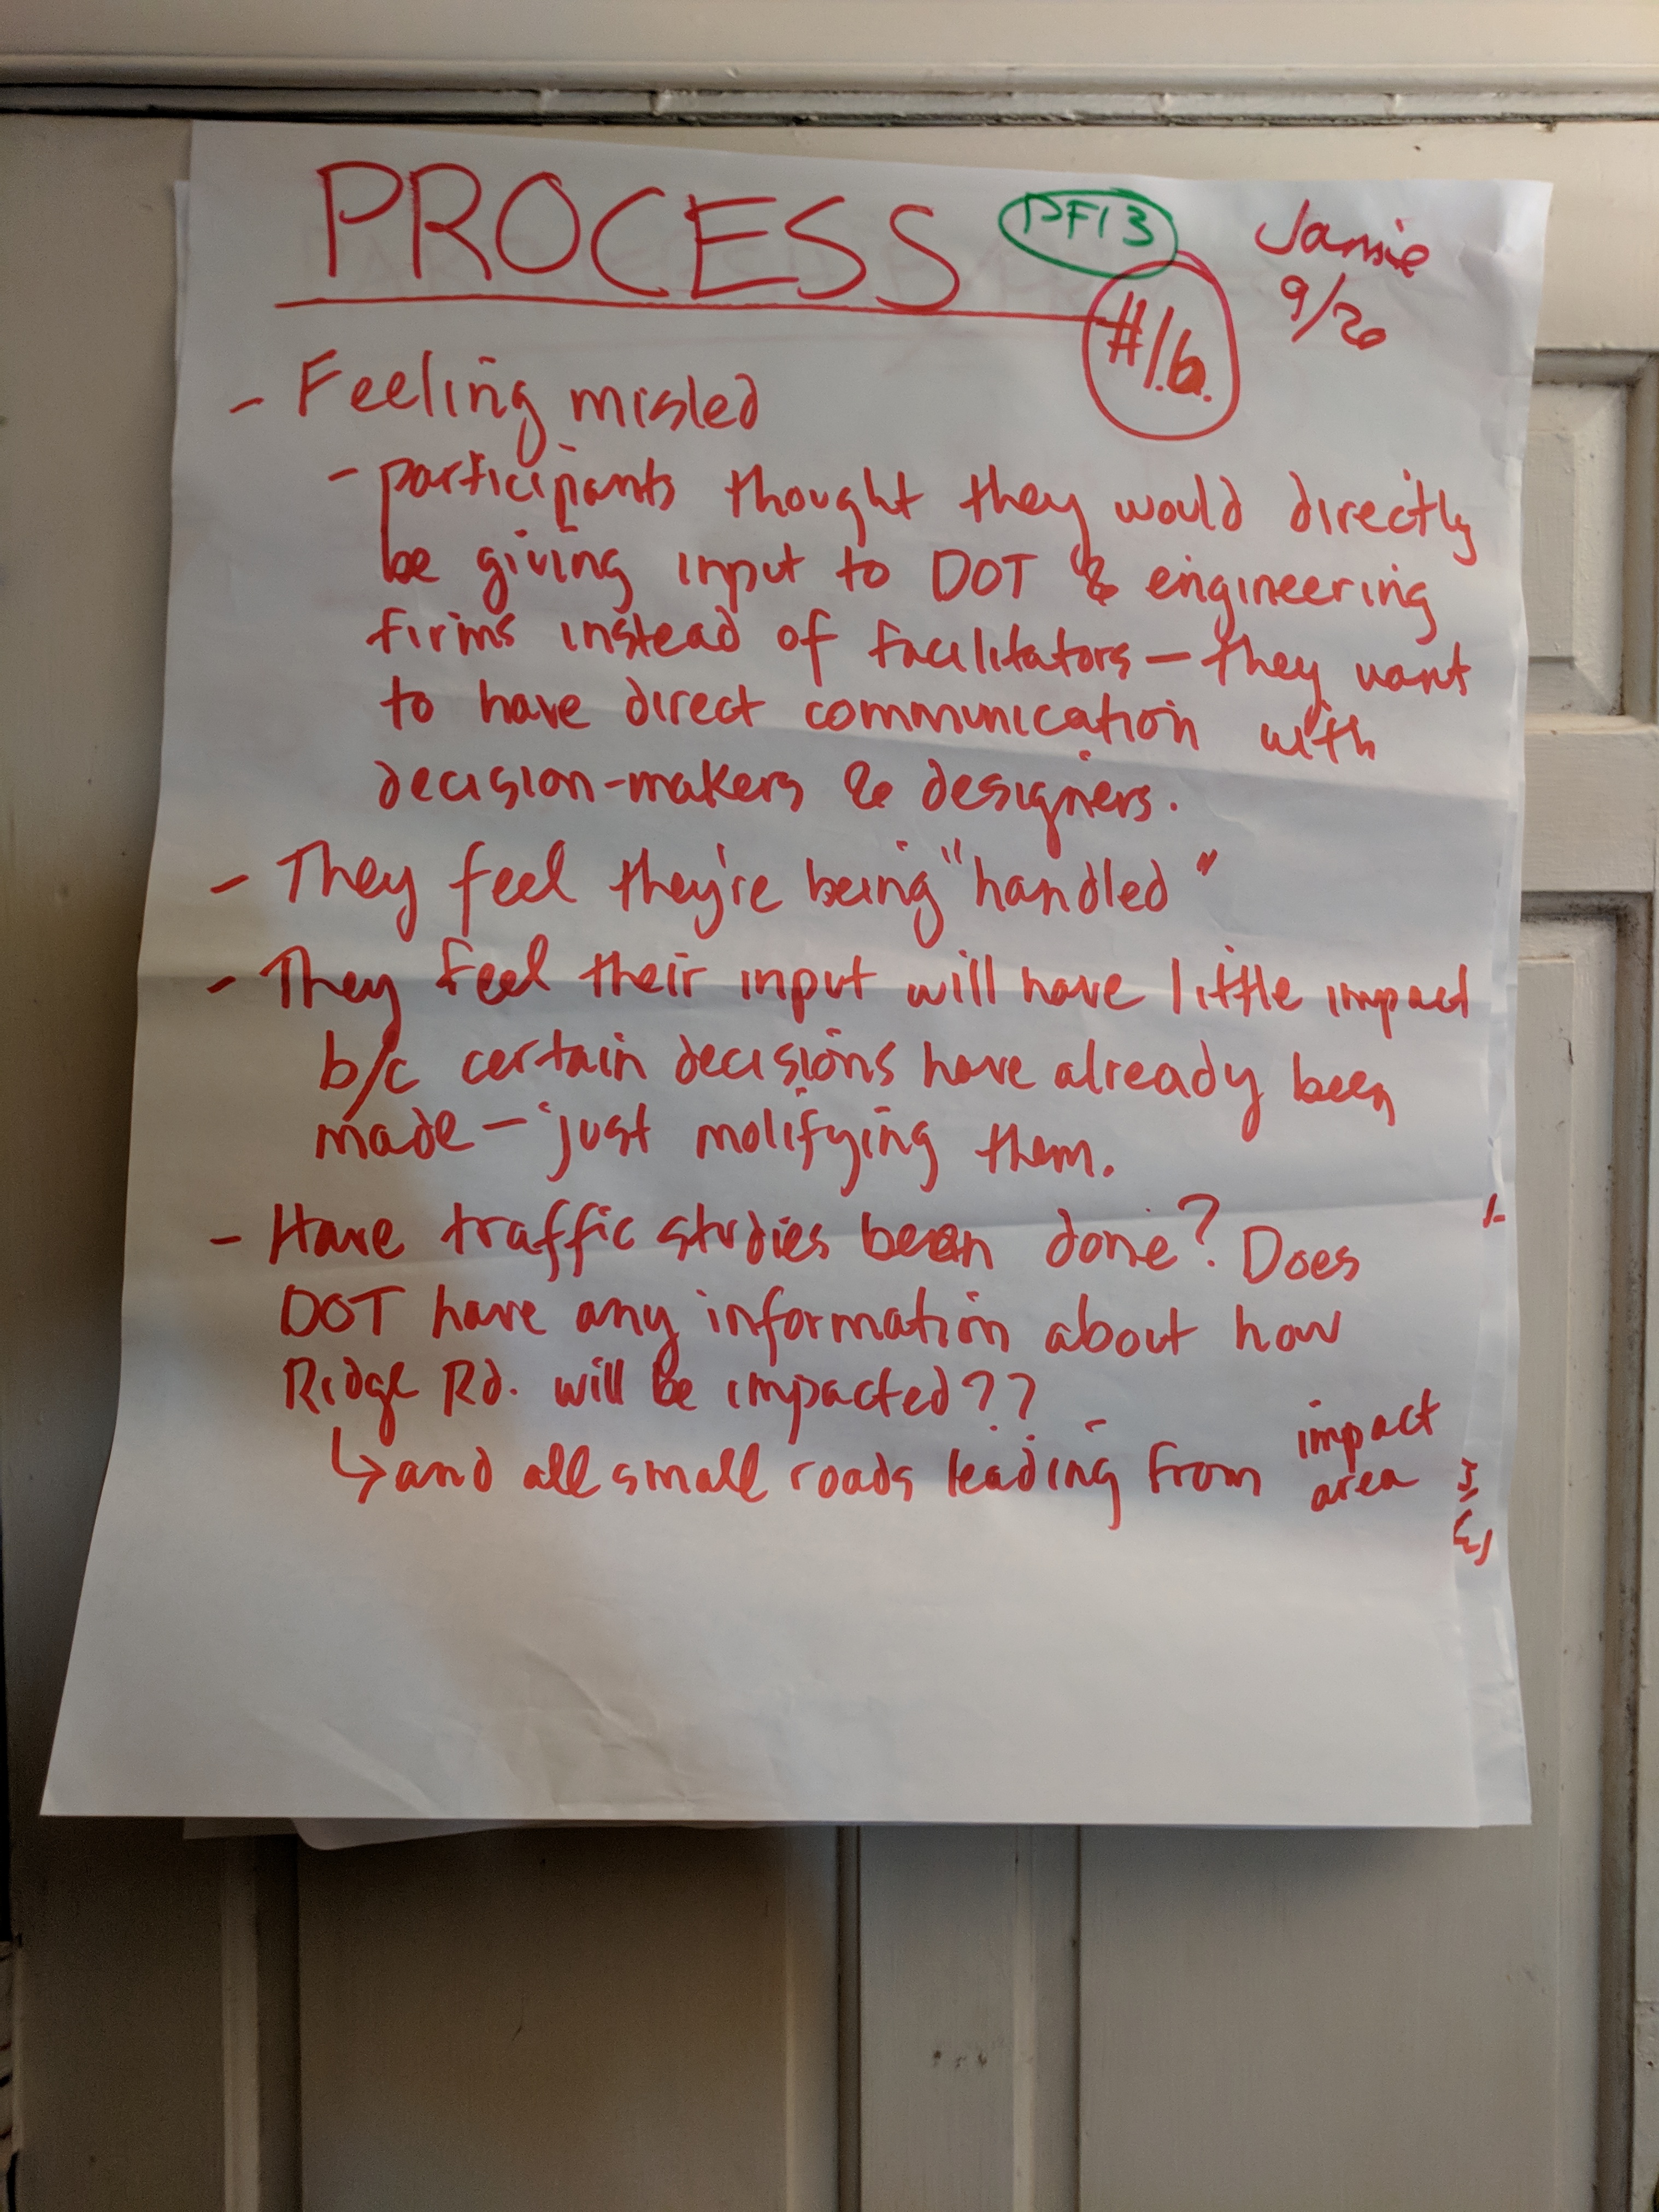 PROCESS
PF13
Jamie
9/26
#1.b.
- Feeling misled
- participants thought they would directly
be giving input to DOT & engineering
firms instead of facilitators — they want
to have direct communication with
decision-makers & designers.
- They feel they're being "handled"
- They feel their input will have little impact
b/c certain decisions have already been
made — just molifying them.
- Have traffic studies been done? Does
DOT have any information about how
Ridge Rd. will be impacted??
↳ and all small roads leading from impact
area